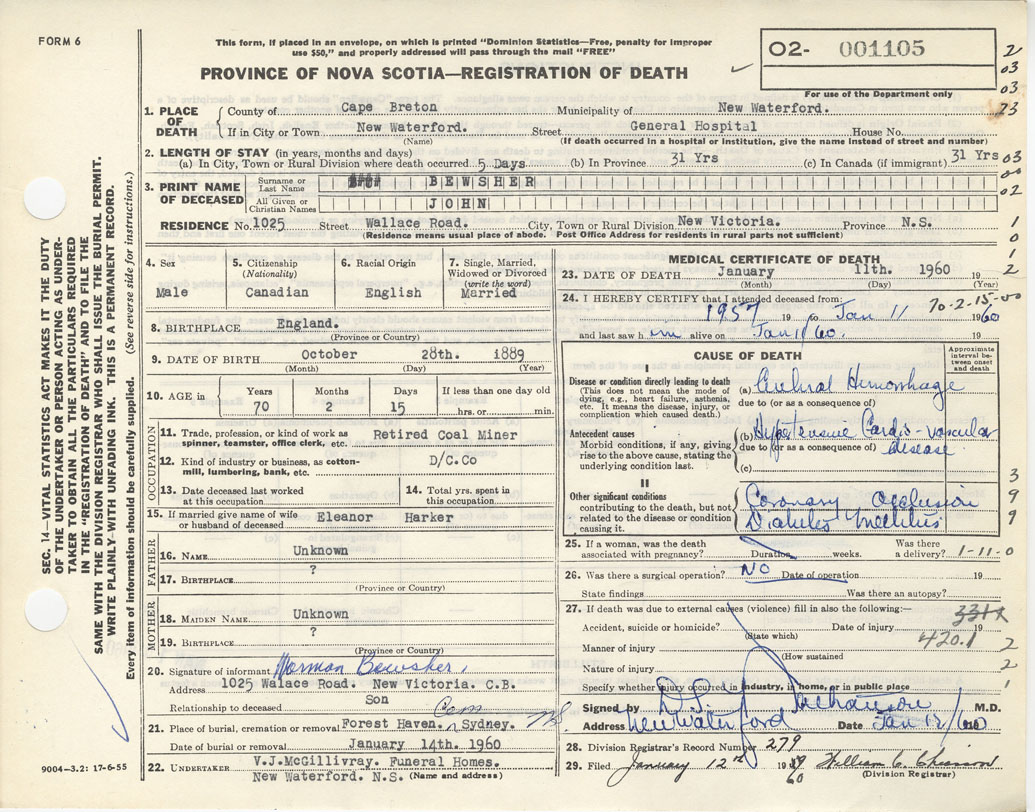 FORM 6
This form, if placed in an envelope, on which is printed "Dominion Statistics—Free, penalty for improper
use $50," and properly addressed will pass through the mail "FREE"
PROVINCE OF NOVA SCOTIA—REGISTRATION OF DEATH
O2- 001105
For use of the Department only
2
03
03
23
03
00
02
1
0
1
2
SEC. 14—VITAL STATISTICS ACT MAKES IT THE DUTY
OF THE UNDERTAKER OR PERSON ACTING AS UNDER-
TAKER TO OBTAIN ALL THE PARTICULARS REQUIRED
IN THE "REGISTRATION OF DEATH" AND TO FILE THE
SAME WITH THE DIVISION REGISTRAR WHO SHALL ISSUE THE BURIAL PERMIT.
WRITE PLAINLY—WITH UNFADING INK. THIS IS A PERMANENT RECORD.
Every item of information should be carefully supplied. (See reverse side for instructions.)
1. PLACE OF DEATH
County of Cape Breton Municipality of New Waterford.
If in City or Town New Waterford. Street General Hospital House No.
(Name) (If death occurred in a hospital or institution, give the name instead of street and number)
2. LENGTH OF STAY (in years, months and days)
(a) In City, Town or Rural Division where death occurred 5 Days (b) In Province 31 Yrs (c) In Canada (if immigrant) 31 Yrs
3. PRINT NAME OF DECEASED
Surname or Last Name BEWSHER
All Given or Christian Names JOHN
RESIDENCE No. 1025 Street Wallace Road. City, Town or Rural Division New Victoria. Province N.S.
(Residence means usual place of abode. Post Office Address for residents in rural parts not sufficient)
4. Sex
Male
5. Citizenship
(Nationality)
Canadian
6. Racial Origin
English
7. Single, Married,
Widowed or Divorced
(write the word)
Married
8. BIRTHPLACE England.
(Province or Country)
9. DATE OF BIRTH October 28th. 1889
(Month) (Day) (Year)
10. AGE in
Years Months Days If less than one day old
70 2 15 hrs. or min.
OCCUPATION
11. Trade, profession, or kind of work as
spinner, teamster, office clerk, etc. Retired Coal Miner
12. Kind of industry or business, as cotton-
mill, lumbering, bank, etc. D/C.Co
13. Date deceased last worked
at this occupation
14. Total yrs. spent in
this occupation
15. If married give name of wife
or husband of deceased Eleanor Harker
FATHER
16. NAME Unknown
17. BIRTHPLACE ?
(Province or Country)
MOTHER
18. MAIDEN NAME Unknown
19. BIRTHPLACE ?
(Province or Country)
20. Signature of informant Norman Bewsher
Address 1025 Walace Road. New Victoria. C.B.
Relationship to deceased Son
21. Place of burial, cremation or removal Forest Haven. Sydney.
Cem NS
Date of burial or removal January 14th. 1960
22. UNDERTAKER V.J.McGillivray. Funeral Homes.
New Waterford. N.S. (Name and address)
9004-3.2: 17-6-55
MEDICAL CERTIFICATE OF DEATH
23. DATE OF DEATH January 11th. 1960 19
(Month) (Day) (Year)
24. I HEREBY CERTIFY that I attended deceased from: 70-2-15-00
1957 19 to Jan 11 1960
and last saw h im alive on Jan 11 60. 19
CAUSE OF DEATH
Approximate
interval be-
tween onset
and death
I
Disease or condition directly leading to death
(This does not mean the mode of
dying, e.g., heart failure, asthenia,
etc. It means the disease, injury, or
complication which caused death.)
(a) Cerebral Hemorrhage
due to (or as a consequence of)
Antecedent causes
Morbid conditions, if any, giving
rise to the above cause, stating the
underlying condition last.
(b) Hypertensive Cardio-vascular
due to (or as a consequence of) disease
(c)
II
Other significant conditions
contributing to the death, but not
related to the disease or condition
causing it.
Coronary Occlusion
Diabetes Mellitus
3
9
9
25. If a woman, was the death
associated with pregnancy? Duration weeks. Was there
a delivery? 1-11-0
26. Was there a surgical operation? NO Date of operation 19
State findings Was there an autopsy?
27. If death was due to external causes (violence) fill in also the following:—
331X
Accident, suicide or homicide? Date of injury 19
(State which)
420.1
Manner of injury
(How sustained
Nature of injury
Specify whether injury occurred in industry, in home, or in public place
2
2
1
Signed by M.D.
Address New Waterford Date Jan 12/60
28. Division Registrar's Record Number 279
29. Filed January 12th 19 60 William C. Chiasson
(Division Registrar)